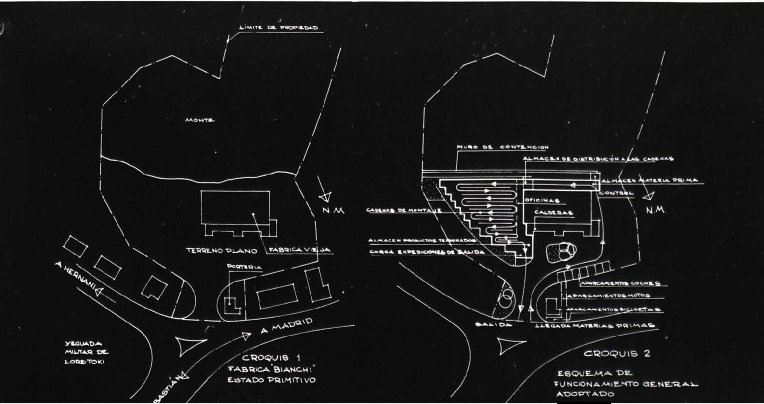 LÍMITE DE PROPIEDAD
MONTE
N.M.
TERRENO PLANO
FABRICA VIEJA
PORTERIA
A HERNANI
A MADRID
YEGUADA
MILITAR DE
LORETOKI
CROQUIS 1
FABRICA 'BIANCHI'
ESTADO PRIMITIVO
MURO DE CONTENCION
ALMACEN DE DISTRIBUCIÓN A LAS CADENAS
ALMACEN MATERIA PRIMA
CONTROL
N.M.
OFICINAS
CADENAS DE MONTAJE
CALDERAS
ALMACEN PRODUCTOS TERMINADOS
CARGA EXPEDICIONES DE SALIDA
APARCAMIENTOS COCHES
APARCAMIENTOS MOTOS
APARCAMIENTOS BICICLETAS
SALIDA
LLEGADA MATERIAS PRIMAS
CROQUIS 2
ESQUEMA DE
FUNCIONAMIENTO GENERAL
ADOPTADO